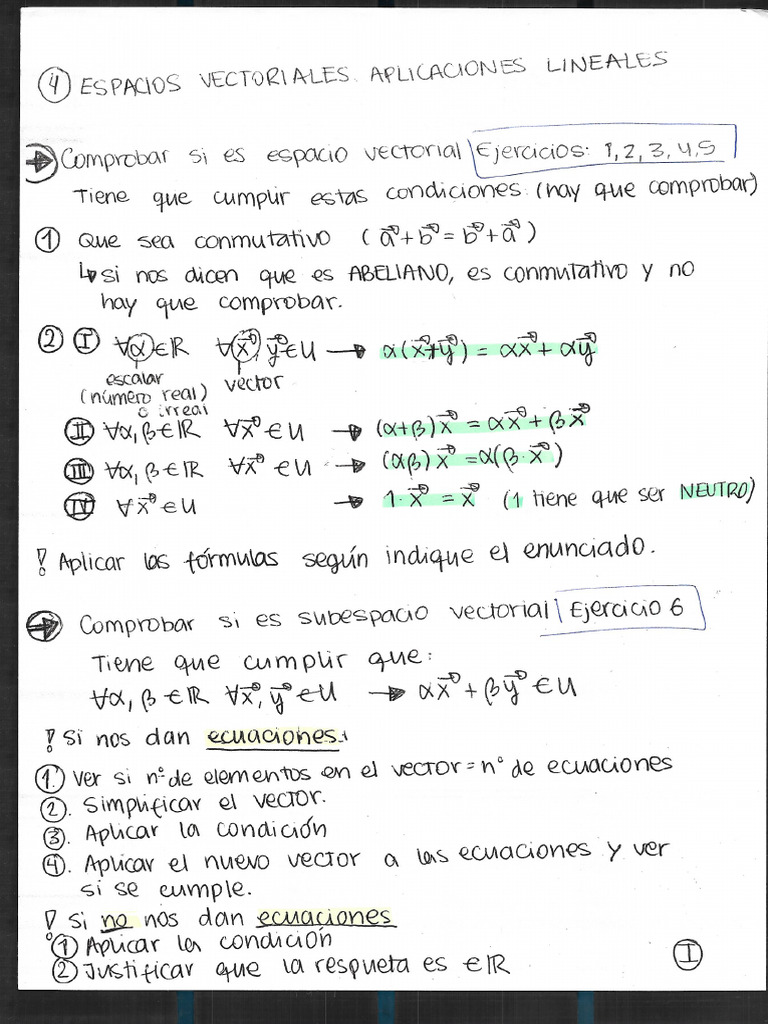 ④ ESPACIOS VECTORIALES. APLICACIONES LINEALES
→ Comprobar si es espacio vectorial | Ejercicios: 1, 2, 3, 4, 5
Tiene que cumplir estas condiciones (hay que comprobar)
① Que sea conmutativo (a⃗ + b⃗ = b⃗ + a⃗)
↳ si nos dicen que es ABELIANO, es conmutativo y no
hay que comprobar.
② Ⅰ ∀α∈ℝ ∀x⃗, y⃗∈U → α(x⃗+y⃗) = αx⃗ + αy⃗
escalar vector
(número real)
o irreal
Ⅱ ∀α, β∈ℝ ∀x⃗∈U → (α+β)x⃗ = αx⃗ + βx⃗
Ⅲ ∀α, β∈ℝ ∀x⃗∈U → (αβ)x⃗ = α(β·x⃗)
Ⅳ ∀x⃗∈U → 1·x⃗ = x⃗ (1 tiene que ser NEUTRO)
! Aplicar las fórmulas según indique el enunciado.
→ Comprobar si es subespacio vectorial | Ejercicio 6
Tiene que cumplir que:
∀α, β∈ℝ ∀x⃗, y⃗∈U → αx⃗ + βy⃗ ∈U
! Si nos dan ecuaciones:
①. Ver si nº de elementos en el vector = nº de ecuaciones
②. Simplificar el vector.
③. Aplicar la condición
④. Aplicar el nuevo vector a las ecuaciones y ver
si se cumple.
! Si no nos dan ecuaciones
① Aplicar la condición
② Justificar que la respueta es ∈ℝ
Ⅰ